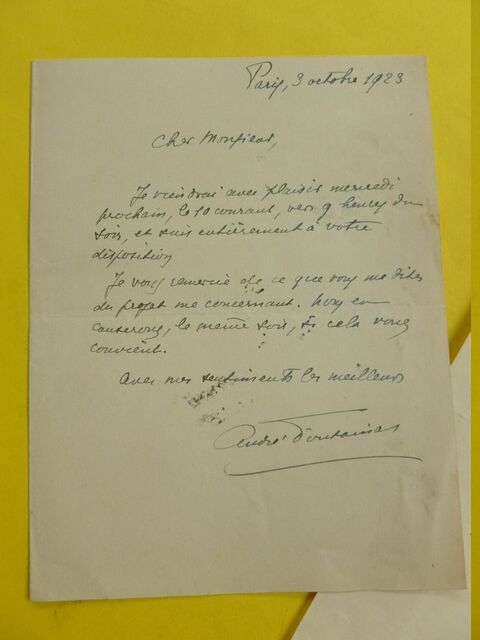 Paris, 3 octobre 1923
Cher Monsieur,
Je viendrai avec plaisir mercredi
prochain, le 10 courant, vers 9 heures du
soir, et suis entièrement à votre
disposition
Je vous remercie de ce que vous me dites
du projet me concernant. Nous en
causerons, le même soir, si cela vous
convient.
Avec mes sentiments les meilleurs
André Fontainas